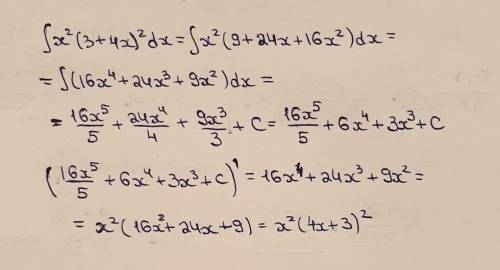 ∫x²(3+4x)²dx = ∫x²(9+24x+16x²)dx =
= ∫(16x⁴+24x³+9x²)dx =
= 16x⁵/5 + 24x⁴/4 + 9x³/3 + C = 16x⁵/5 + 6x⁴ + 3x³ + C
(16x⁵/5 + 6x⁴ + 3x³ + C)' = 16x⁴ + 24x³ + 9x² =
= x²(16x² + 24x + 9) = x²(4x+3)²